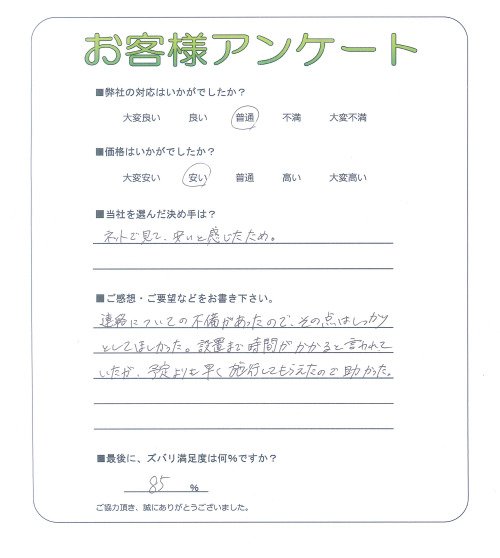 お客様アンケート
■弊社の対応はいかがでしたか？
大変良い 良い 普通 不満 大変不満
■価格はいかがでしたか？
大変安い 安い 普通 高い 大変高い
■当社を選んだ決め手は？
ネットで見て、安いと感じたため。
■ご感想・ご要望などをお書き下さい。
連絡についての不備があったので、その点はしっかり
としてほしかった。設置まで時間がかかると言われて
いたが、予定よりも早く施行してもらえたので助かった。
■最後に、ズバリ満足度は何％ですか？
85 %
ご協力頂き、誠にありがとうございました。